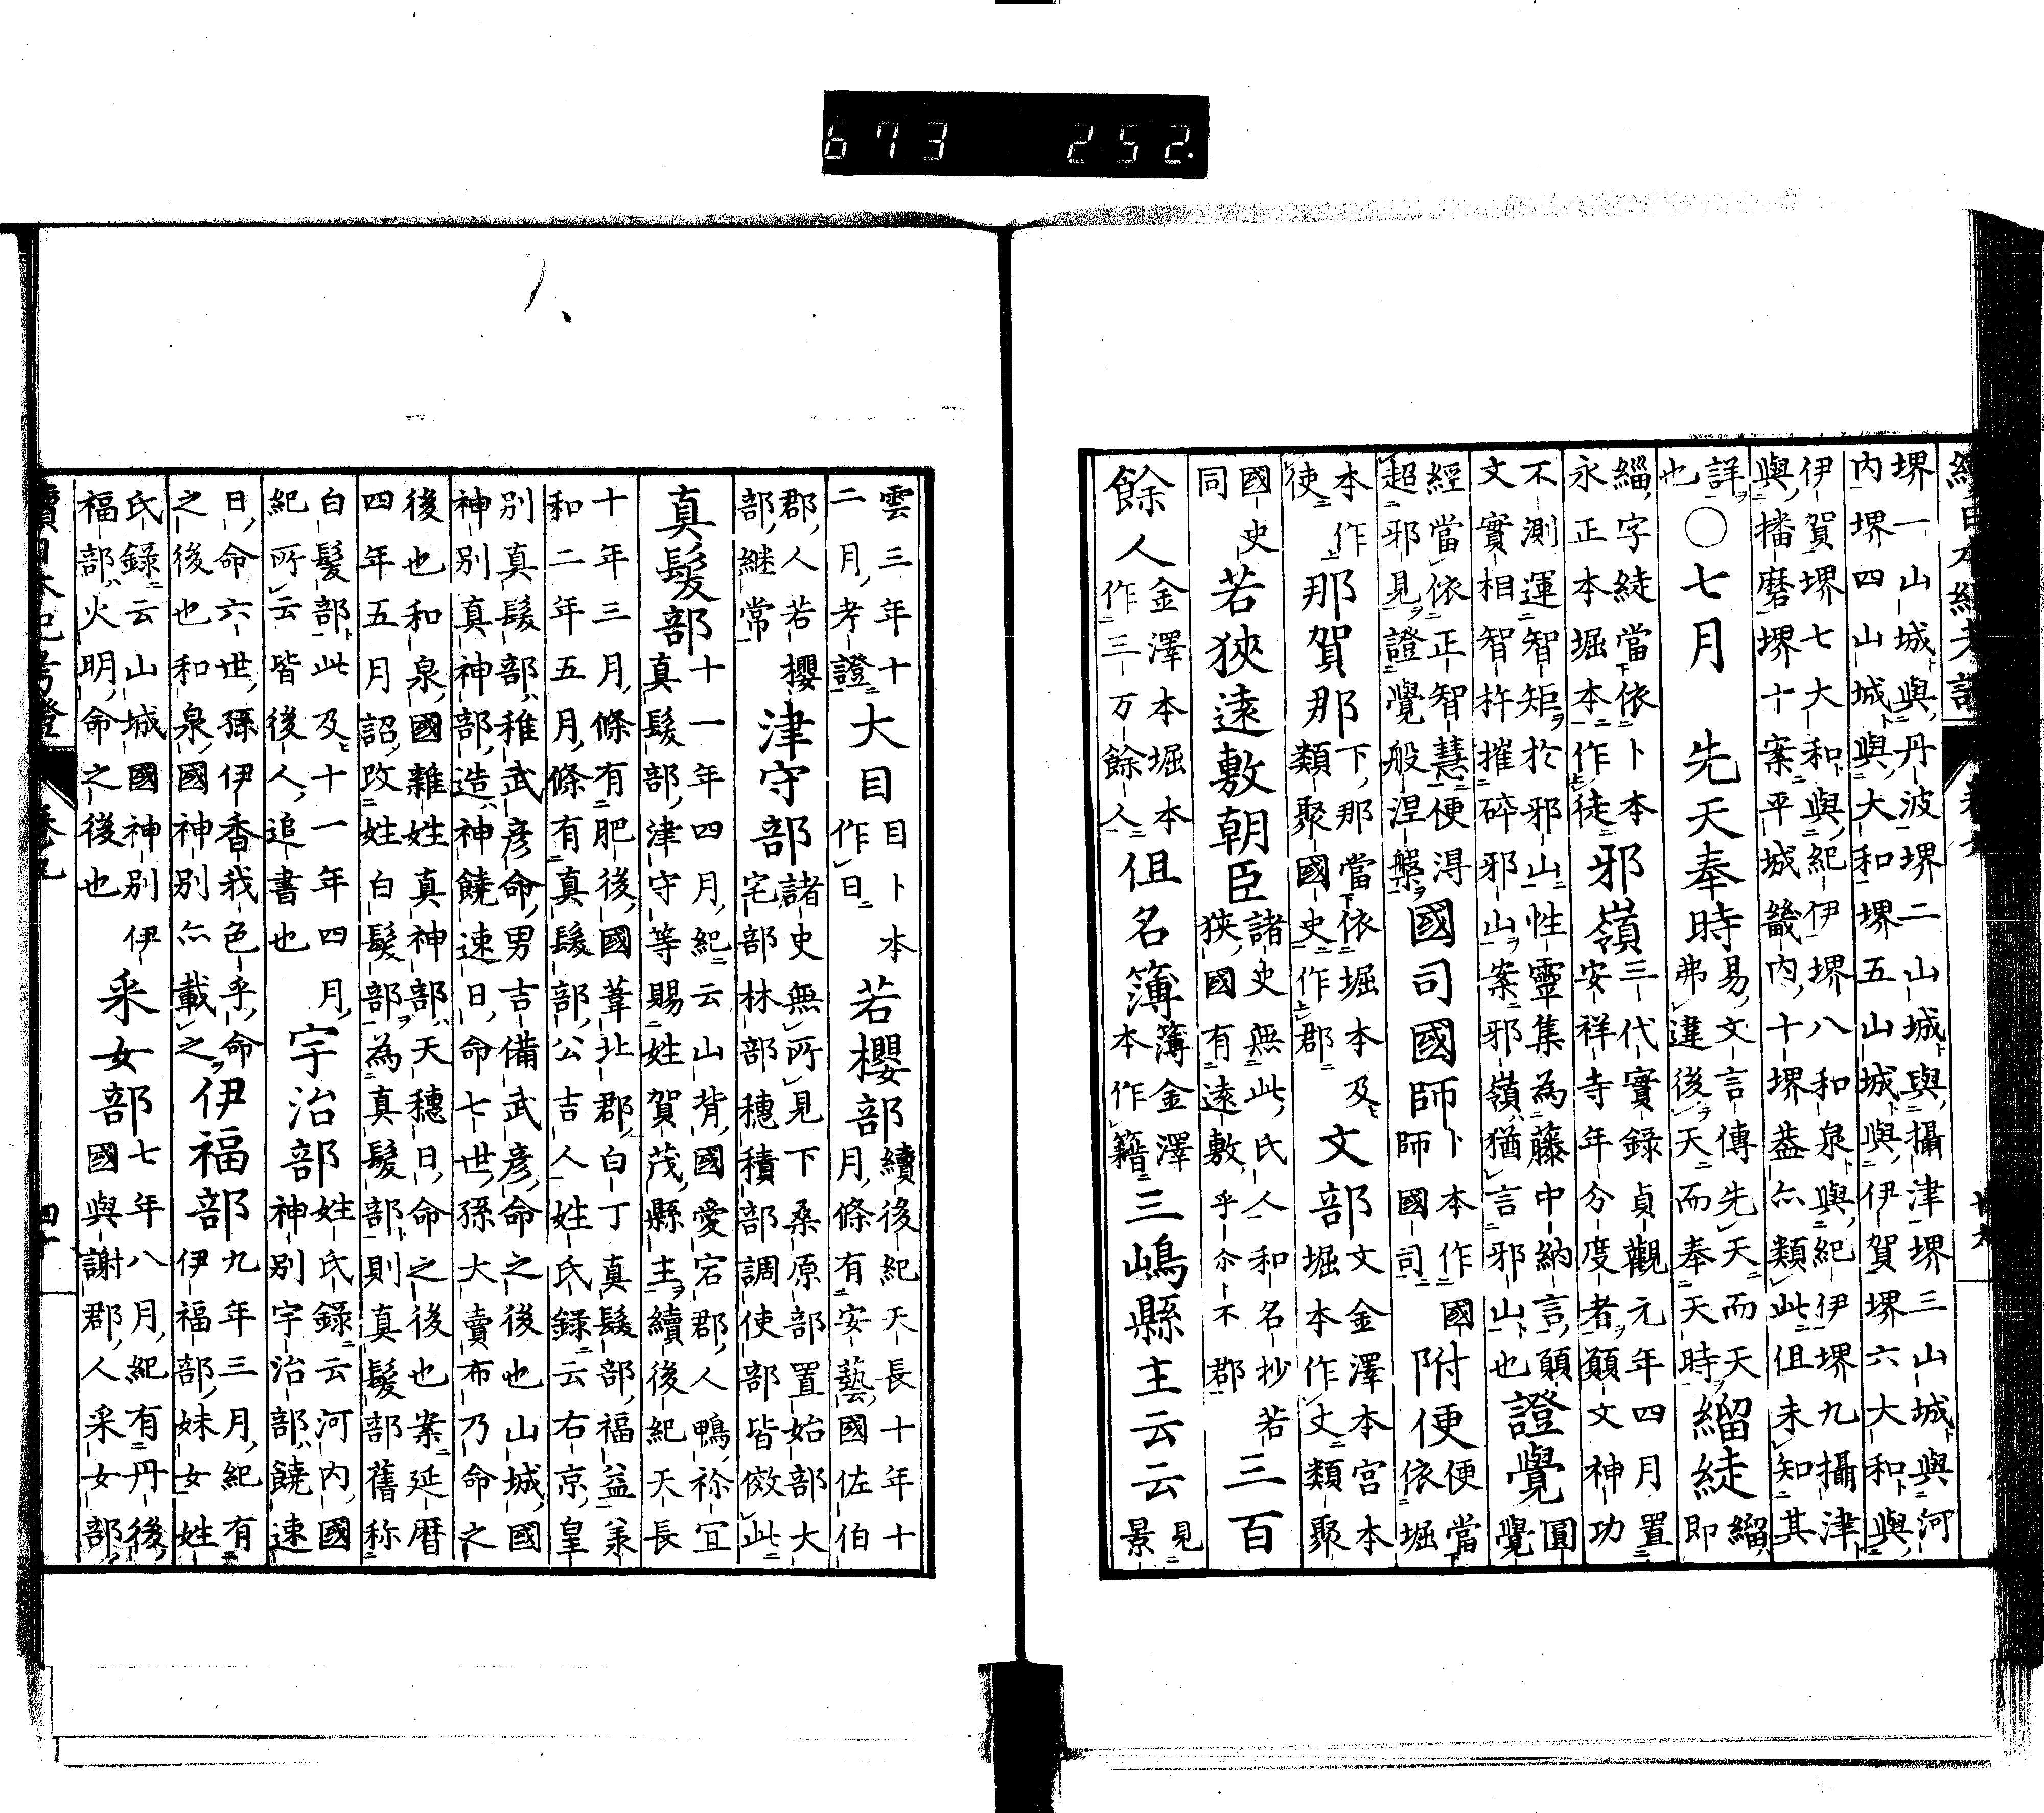 續日本紀考證 卷九 卅九
堺一山城與丹波堺二山城與攝津堺三山城與河
内堺四山城與大和堺五山城與伊賀堺六大和與
伊賀堺七大和與紀伊堺八和泉與紀伊堺九攝津
與播磨堺十案平城畿内十堺盖亦類此但未知其
詳也○七月 先天奉時 易文言傳先天而天弗違後天而奉天時 緇綟 緇即
緇字綟當依卜本永正本堀本作徒 邪嶺 三代實録貞觀元年四月置安祥寺年分度者願文神功
不測運智矩於邪山性靈集為藤中納言願文實相智杵摧碎邪山案邪嶺猶言邪山也 證覺 圓覺
經當依正智慧便得超邪見證覺般涅槃 國司國師 卜本作國師國司 附便 便當依堀
本作使 那賀那 下那當依堀本及類聚國史作郡 文部 文金澤本宮本堀本作丈類聚
國史同 若狹遠敷朝臣 諸史無此氏人和名抄若狹國有遠敷乎尒不郡 三百
餘人 金澤本堀本作三万餘人 但名簿 簿金澤本作籍 三嶋縣主云云 見景
雲三年十二月考證 大目 目卜本作日 若櫻部 續後紀天長十年十月條有安藝國佐伯
郡人若櫻部継常 津守部 諸史無所見下桑原部置始部大宅部林部穗積部調使部皆傚此
真髮部 十一年四月紀云山背國愛宕郡人鴨祢宜真髮部津守等賜姓賀茂縣主續後紀天長
十年三月條有肥後國葦北郡白丁真髮部福益羕和二年五月條有真髮部公吉人姓氏録云右京皇
別真髮部稚武彦命男吉備武彦命之後也山城國神別真神部造神饒速日命七世孫大賣布乃命之
後也和泉國雜姓真神部天穗日命之後也案延暦四年五月詔改姓白髮部為真髮部則真髮部舊称
白髮部此及十一年四月紀所云皆後人追書也 宇治部 姓氏録云河内國神別宇治部饒速
日命六世孫伊香我色乎命之後也和泉國神別亦載之 伊福部 九年三月紀有伊福部妹女姓
氏録云山城國神別伊福部火明命之後也 采女部 七年八月紀有丹後國與謝郡人采女部
續日本紀考證 卷九 四十